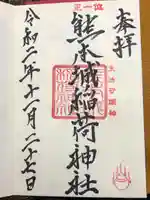 奉拝
正一位
熊本城稲荷神社
令和二年十一月二十七日